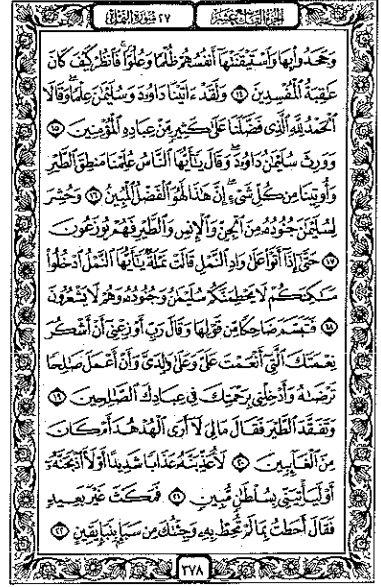 الجزء التاسع عشر ٢٧ سورة النمل
وَجَحَدُوا۟ بِهَا وَٱسْتَيْقَنَتْهَآ أَنفُسُهُمْ ظُلْمًا وَعُلُوًّا ۚ فَٱنظُرْ كَيْفَ كَانَ
عَٰقِبَةُ ٱلْمُفْسِدِينَ ١٤ وَلَقَدْ ءَاتَيْنَا دَاوُۥدَ وَسُلَيْمَٰنَ عِلْمًا ۖ وَقَالَا
ٱلْحَمْدُ لِلَّهِ ٱلَّذِى فَضَّلَنَا عَلَىٰ كَثِيرٍ مِّنْ عِبَادِهِ ٱلْمُؤْمِنِينَ ١٥
وَوَرِثَ سُلَيْمَٰنُ دَاوُۥدَ ۖ وَقَالَ يَٰٓأَيُّهَا ٱلنَّاسُ عُلِّمْنَا مَنطِقَ ٱلطَّيْرِ
وَأُوتِينَا مِن كُلِّ شَىْءٍ ۖ إِنَّ هَٰذَا لَهُوَ ٱلْفَضْلُ ٱلْمُبِينُ ١٦ وَحُشِرَ
لِسُلَيْمَٰنَ جُنُودُهُۥ مِنَ ٱلْجِنِّ وَٱلْإِنسِ وَٱلطَّيْرِ فَهُمْ يُوزَعُونَ
١٧ حَتَّىٰٓ إِذَآ أَتَوْا۟ عَلَىٰ وَادِ ٱلنَّمْلِ قَالَتْ نَمْلَةٌ يَٰٓأَيُّهَا ٱلنَّمْلُ ٱدْخُلُوا۟
مَسَٰكِنَكُمْ لَا يَحْطِمَنَّكُمْ سُلَيْمَٰنُ وَجُنُودُهُۥ وَهُمْ لَا يَشْعُرُونَ
١٨ فَتَبَسَّمَ ضَاحِكًا مِّن قَوْلِهَا وَقَالَ رَبِّ أَوْزِعْنِىٓ أَنْ أَشْكُرَ
نِعْمَتَكَ ٱلَّتِىٓ أَنْعَمْتَ عَلَىَّ وَعَلَىٰ وَٰلِدَىَّ وَأَنْ أَعْمَلَ صَٰلِحًا
تَرْضَىٰهُ وَأَدْخِلْنِى بِرَحْمَتِكَ فِى عِبَادِكَ ٱلصَّٰلِحِينَ ١٩
وَتَفَقَّدَ ٱلطَّيْرَ فَقَالَ مَالِىَ لَآ أَرَى ٱلْهُدْهُدَ أَمْ كَانَ
مِنَ ٱلْغَآئِبِينَ ٢٠ لَأُعَذِّبَنَّهُۥ عَذَابًا شَدِيدًا أَوْ لَأَا۟ذْبَحَنَّهُۥٓ
أَوْ لَيَأْتِيَنِّى بِسُلْطَٰنٍ مُّبِينٍ ٢١ فَمَكَثَ غَيْرَ بَعِيدٍ
فَقَالَ أَحَطتُ بِمَا لَمْ تُحِطْ بِهِۦ وَجِئْتُكَ مِن سَبَإٍۭ بِنَبَإٍ يَقِينٍ ٢٢
٣٧٨